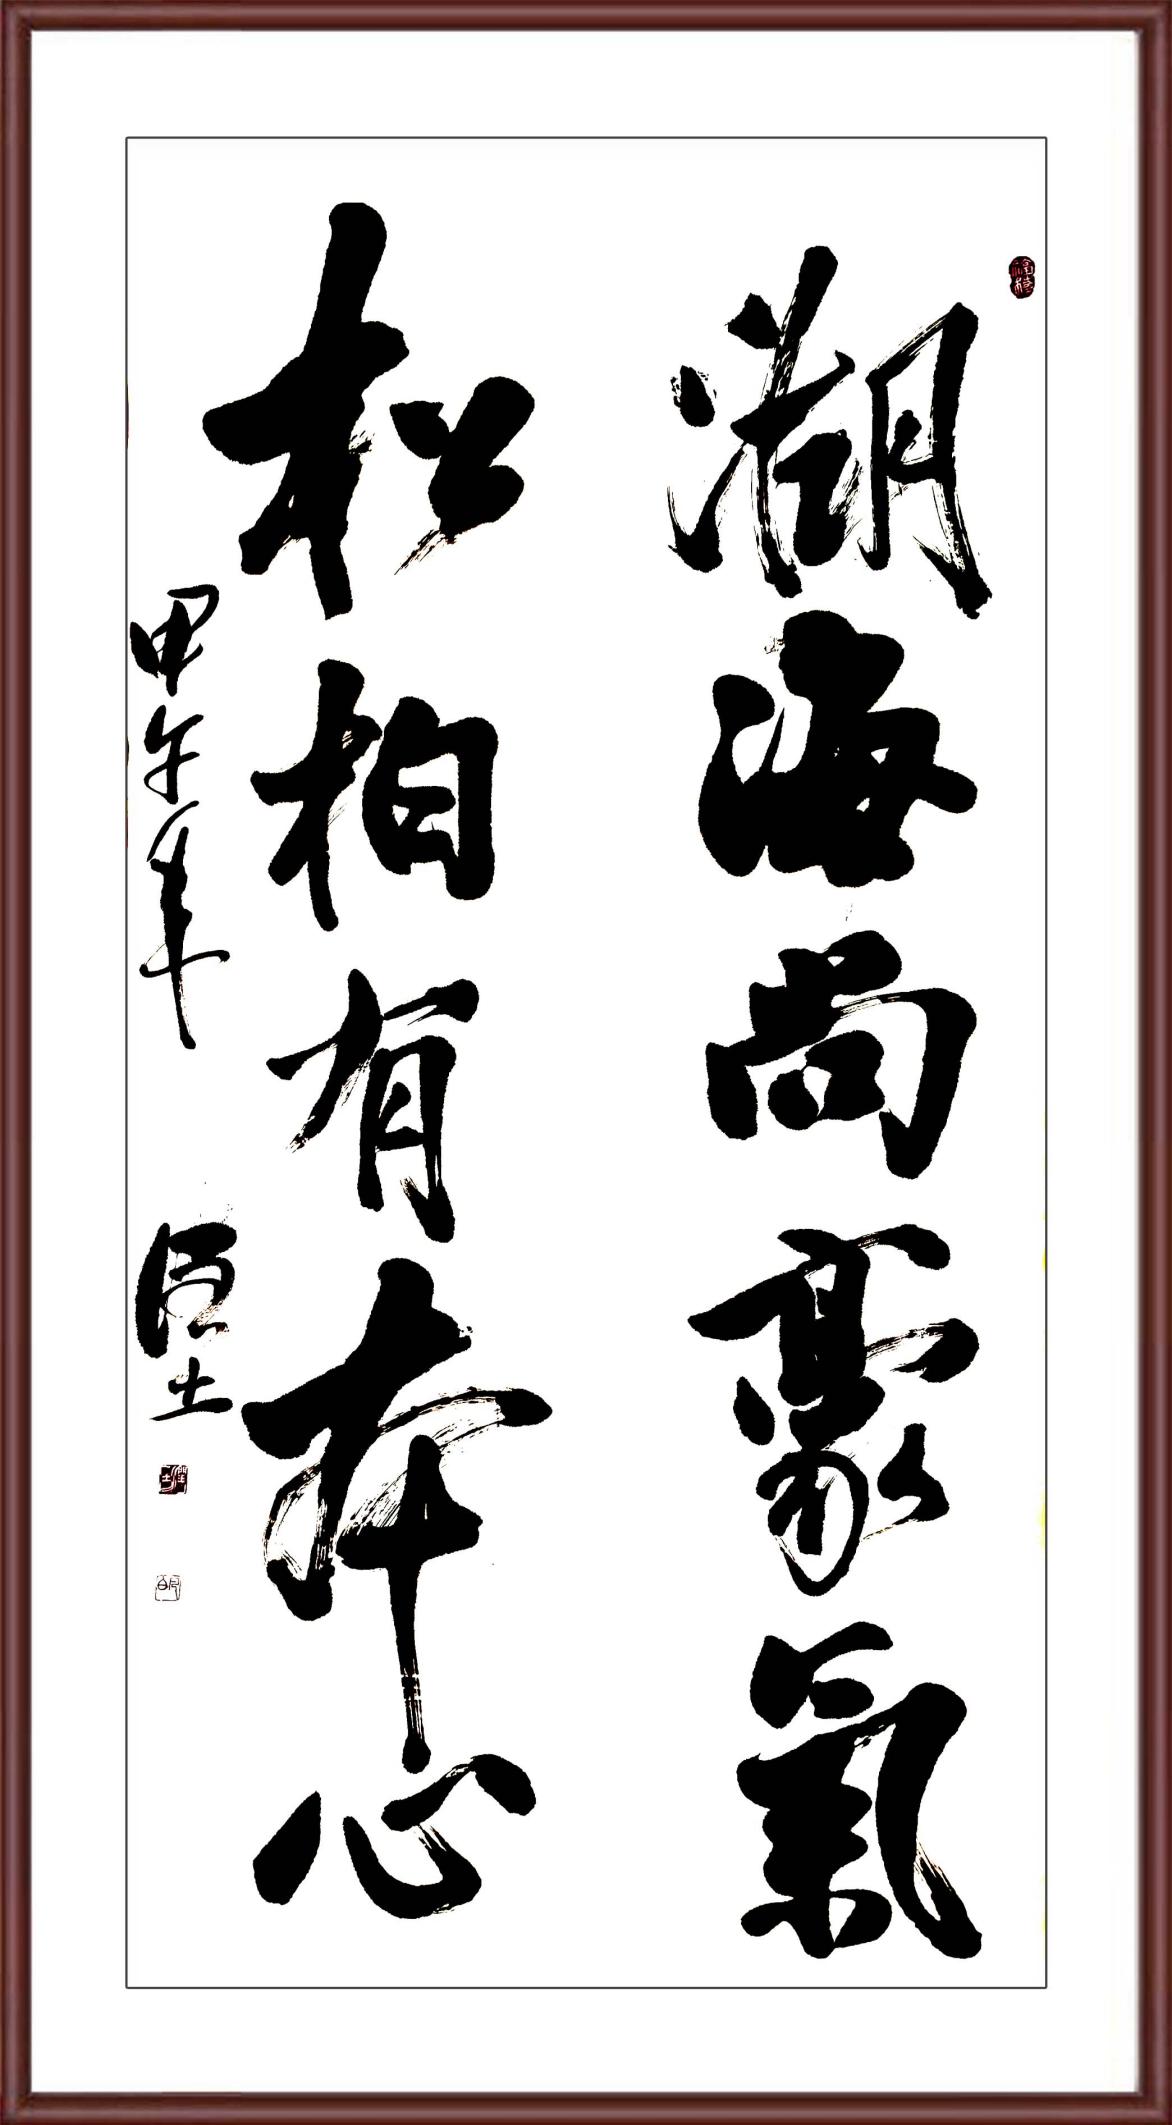 湖海尚豪氣
松柏有本心
甲午年